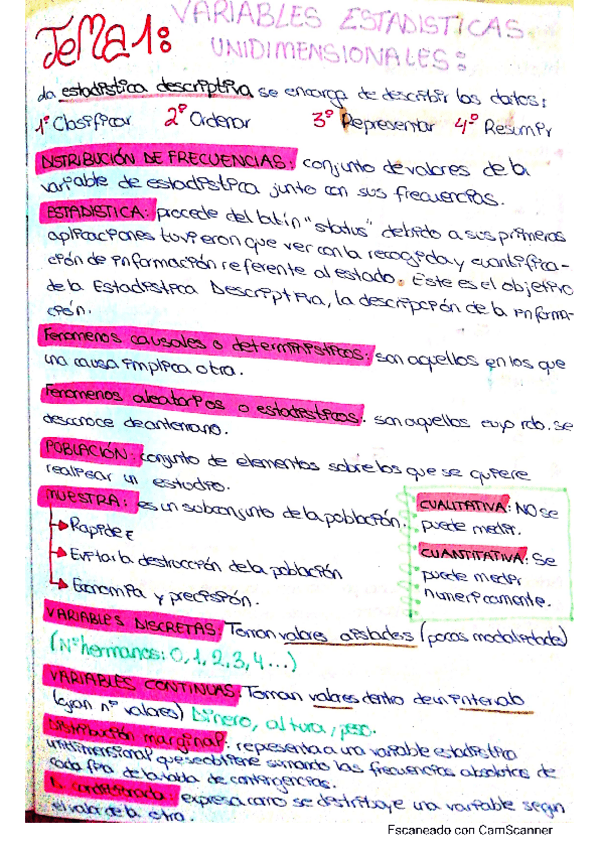 TEMA 1: VARIABLES ESTADISTICAS
UNIDIMENSIONALES:
La estadística descriptiva se encarga de describir los datos:
1º Clasificar 2º Ordenar 3º Representar 4º Resumir
DISTRIBUCIÓN DE FRECUENCIAS: conjunto de valores de la
variable de estadística junto con sus frecuencias.
ESTADISTICA: procede del latín "status" debido a sus primeras
aplicaciones tuvieron que ver con la recogida y cuantifica-
ción de información referente al estado. Este es el objetivo
de la Estadística Descriptiva, la descripción de la informa-
ción.
Fenomenos causales o deterministicos: son aquellos en los que
una causa implica otra.
Fenomenos aleatorios o estadisticos: son aquellos cuyo rdo. se
desconoce de antemano.
POBLACIÓN: conjunto de elementos sobre los que se quiere
realizar un estudio.
MUESTRA: es un subconjunto de la población.
Rapidez
Evitar la destrucción de la población
Economia y precisión.
CUALITATIVA: NO se
puede medir.
CUANTITATIVA: Se
puede medir
numericamente.
VARIABLES DISCRETAS: Toman valores aislados (pocas modalidades)
(Nº hermanos: 0, 1, 2, 3, 4...)
VARIABLES CONTINUAS: Toman valores dentro de un intervalo
(gran nº valores) Dinero, altura, peso.
Distribución marginal: representa a una variable estadística
unidimensional que se obtiene sumando las frecuencias absolutas de
cada fila de la tabla de contingencias.
D. condicionada: expresa como se distribuye una variable según
el valor de la otra.
Escaneado con CamScanner